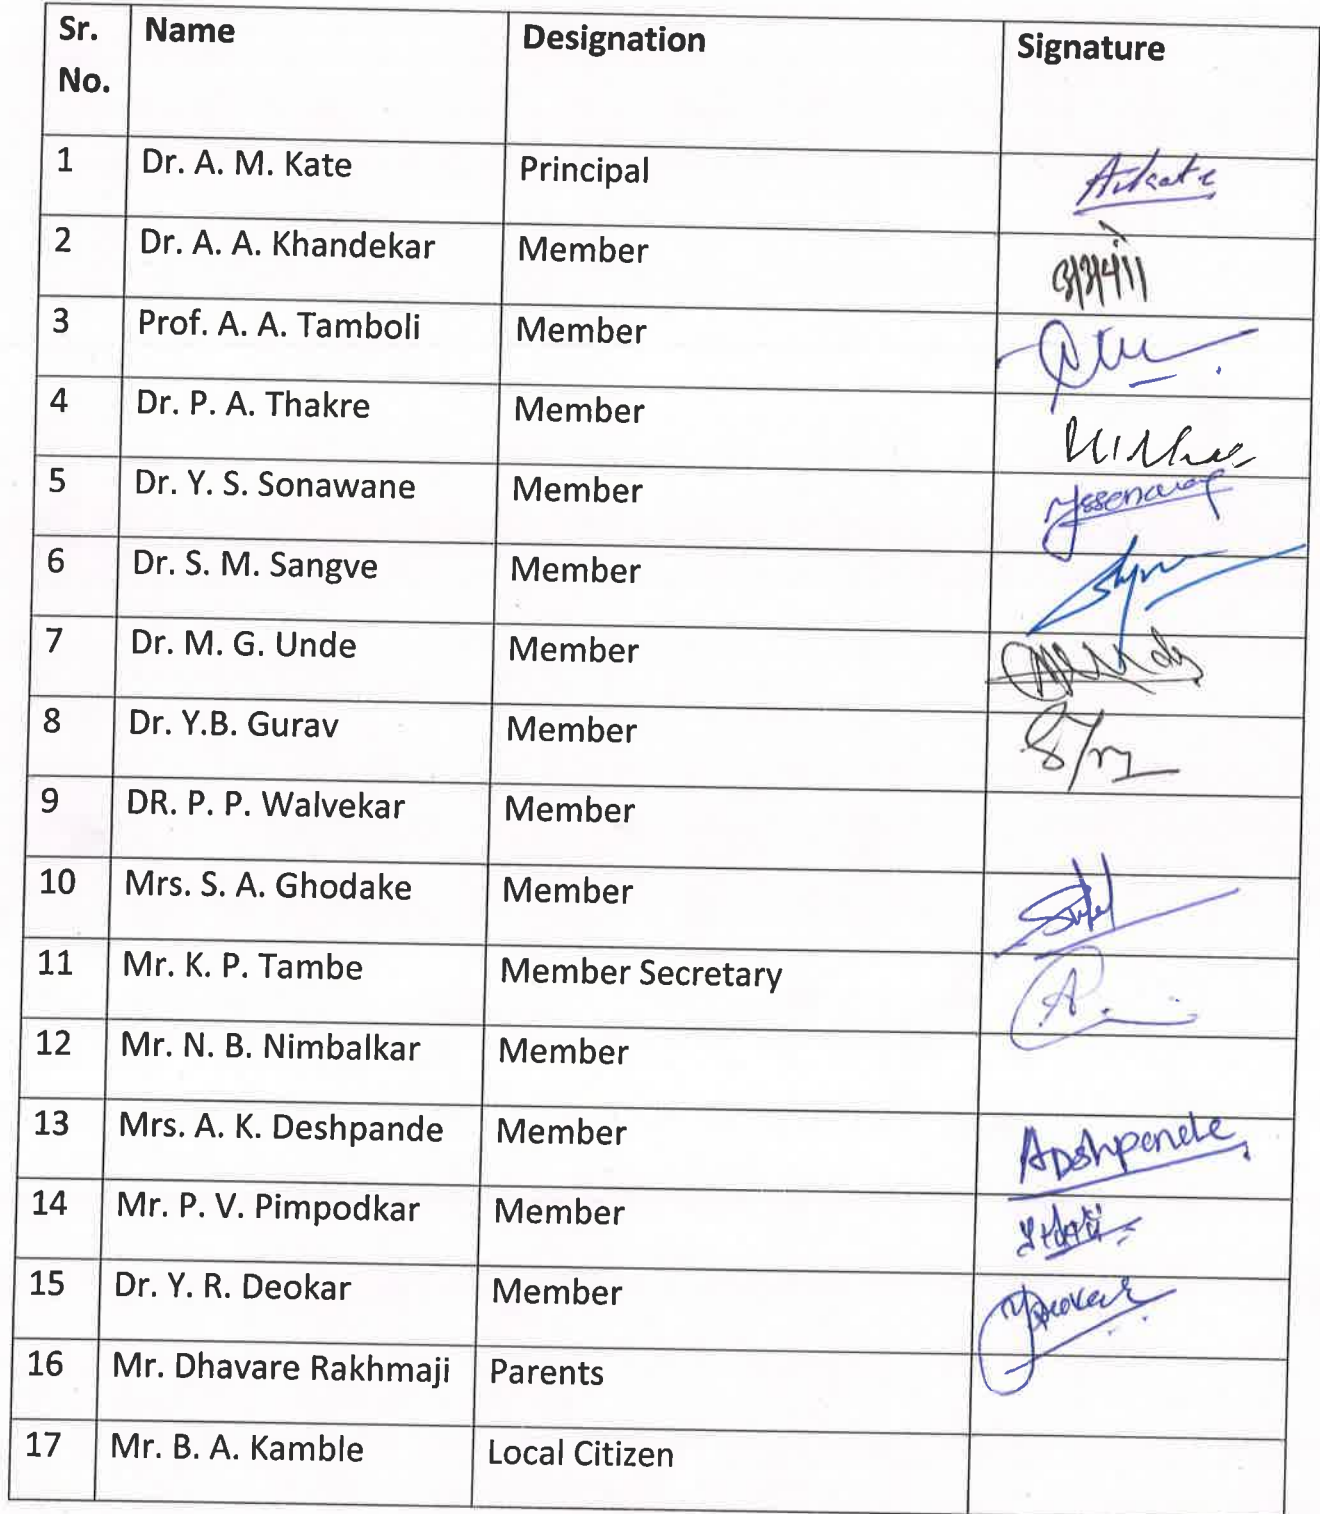 Sr. No. Name Designation Signature
1 Dr. A. M. Kate Principal
2 Dr. A. A. Khandekar Member
3 Prof. A. A. Tamboli Member
4 Dr. P. A. Thakre Member
5 Dr. Y. S. Sonawane Member
6 Dr. S. M. Sangve Member
7 Dr. M. G. Unde Member
8 Dr. Y.B. Gurav Member
9 DR. P. P. Walvekar Member
10 Mrs. S. A. Ghodake Member
11 Mr. K. P. Tambe Member Secretary
12 Mr. N. B. Nimbalkar Member
13 Mrs. A. K. Deshpande Member
14 Mr. P. V. Pimpodkar Member
15 Dr. Y. R. Deokar Member
16 Mr. Dhavare Rakhmaji Parents
17 Mr. B. A. Kamble Local Citizen